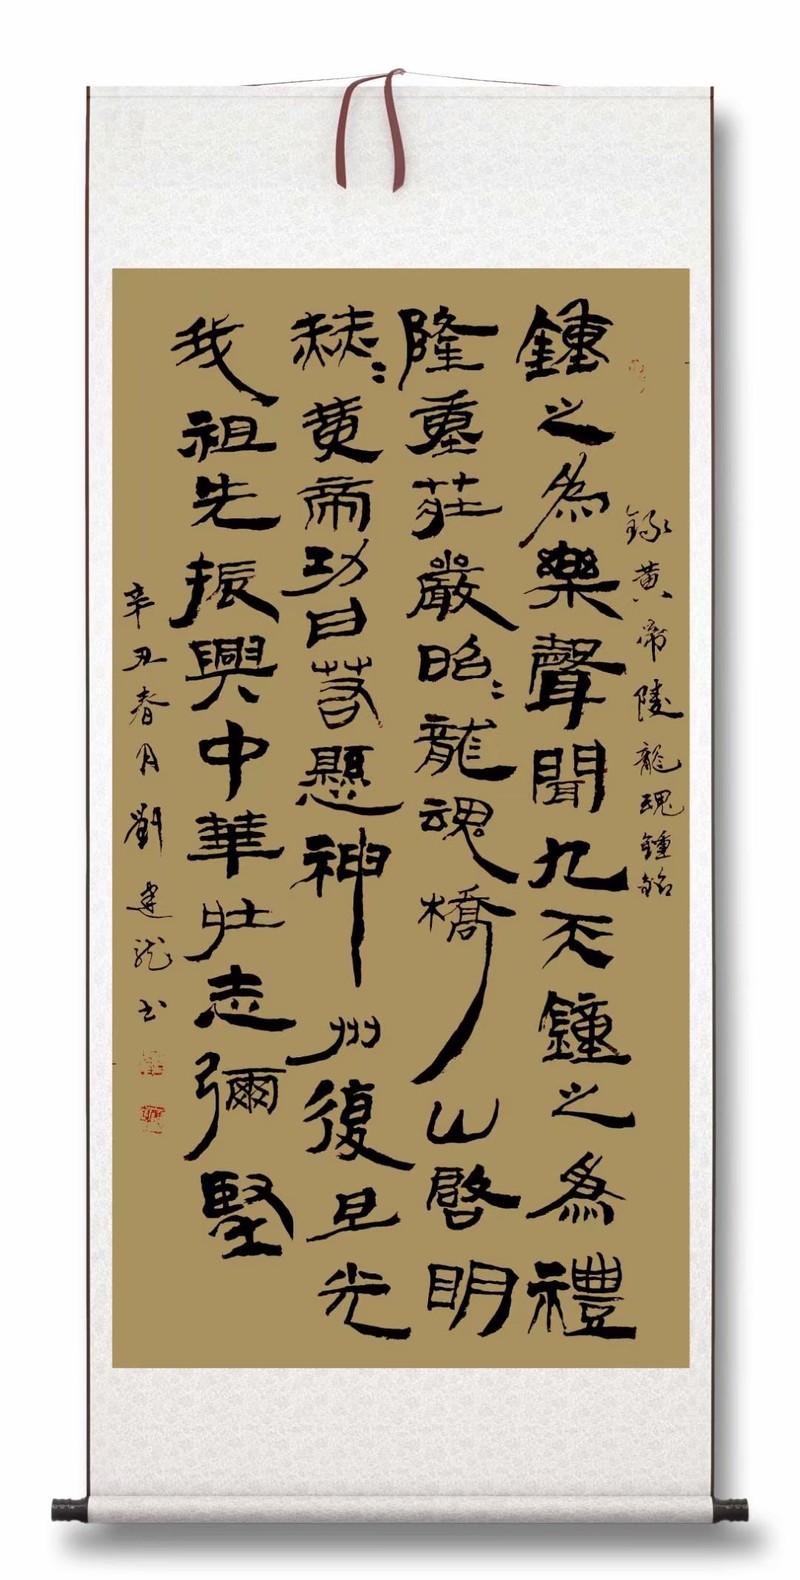 錄黄帝陵龍魂鍾銘
鍾之為樂聲聞九天鐘之為禮
隆重莊嚴昭〻龍魂橋山啓明
赫〻黄帝功日若懸神州復旦光
我祖先振興中華壯志彌堅
辛丑春月劉建龍书